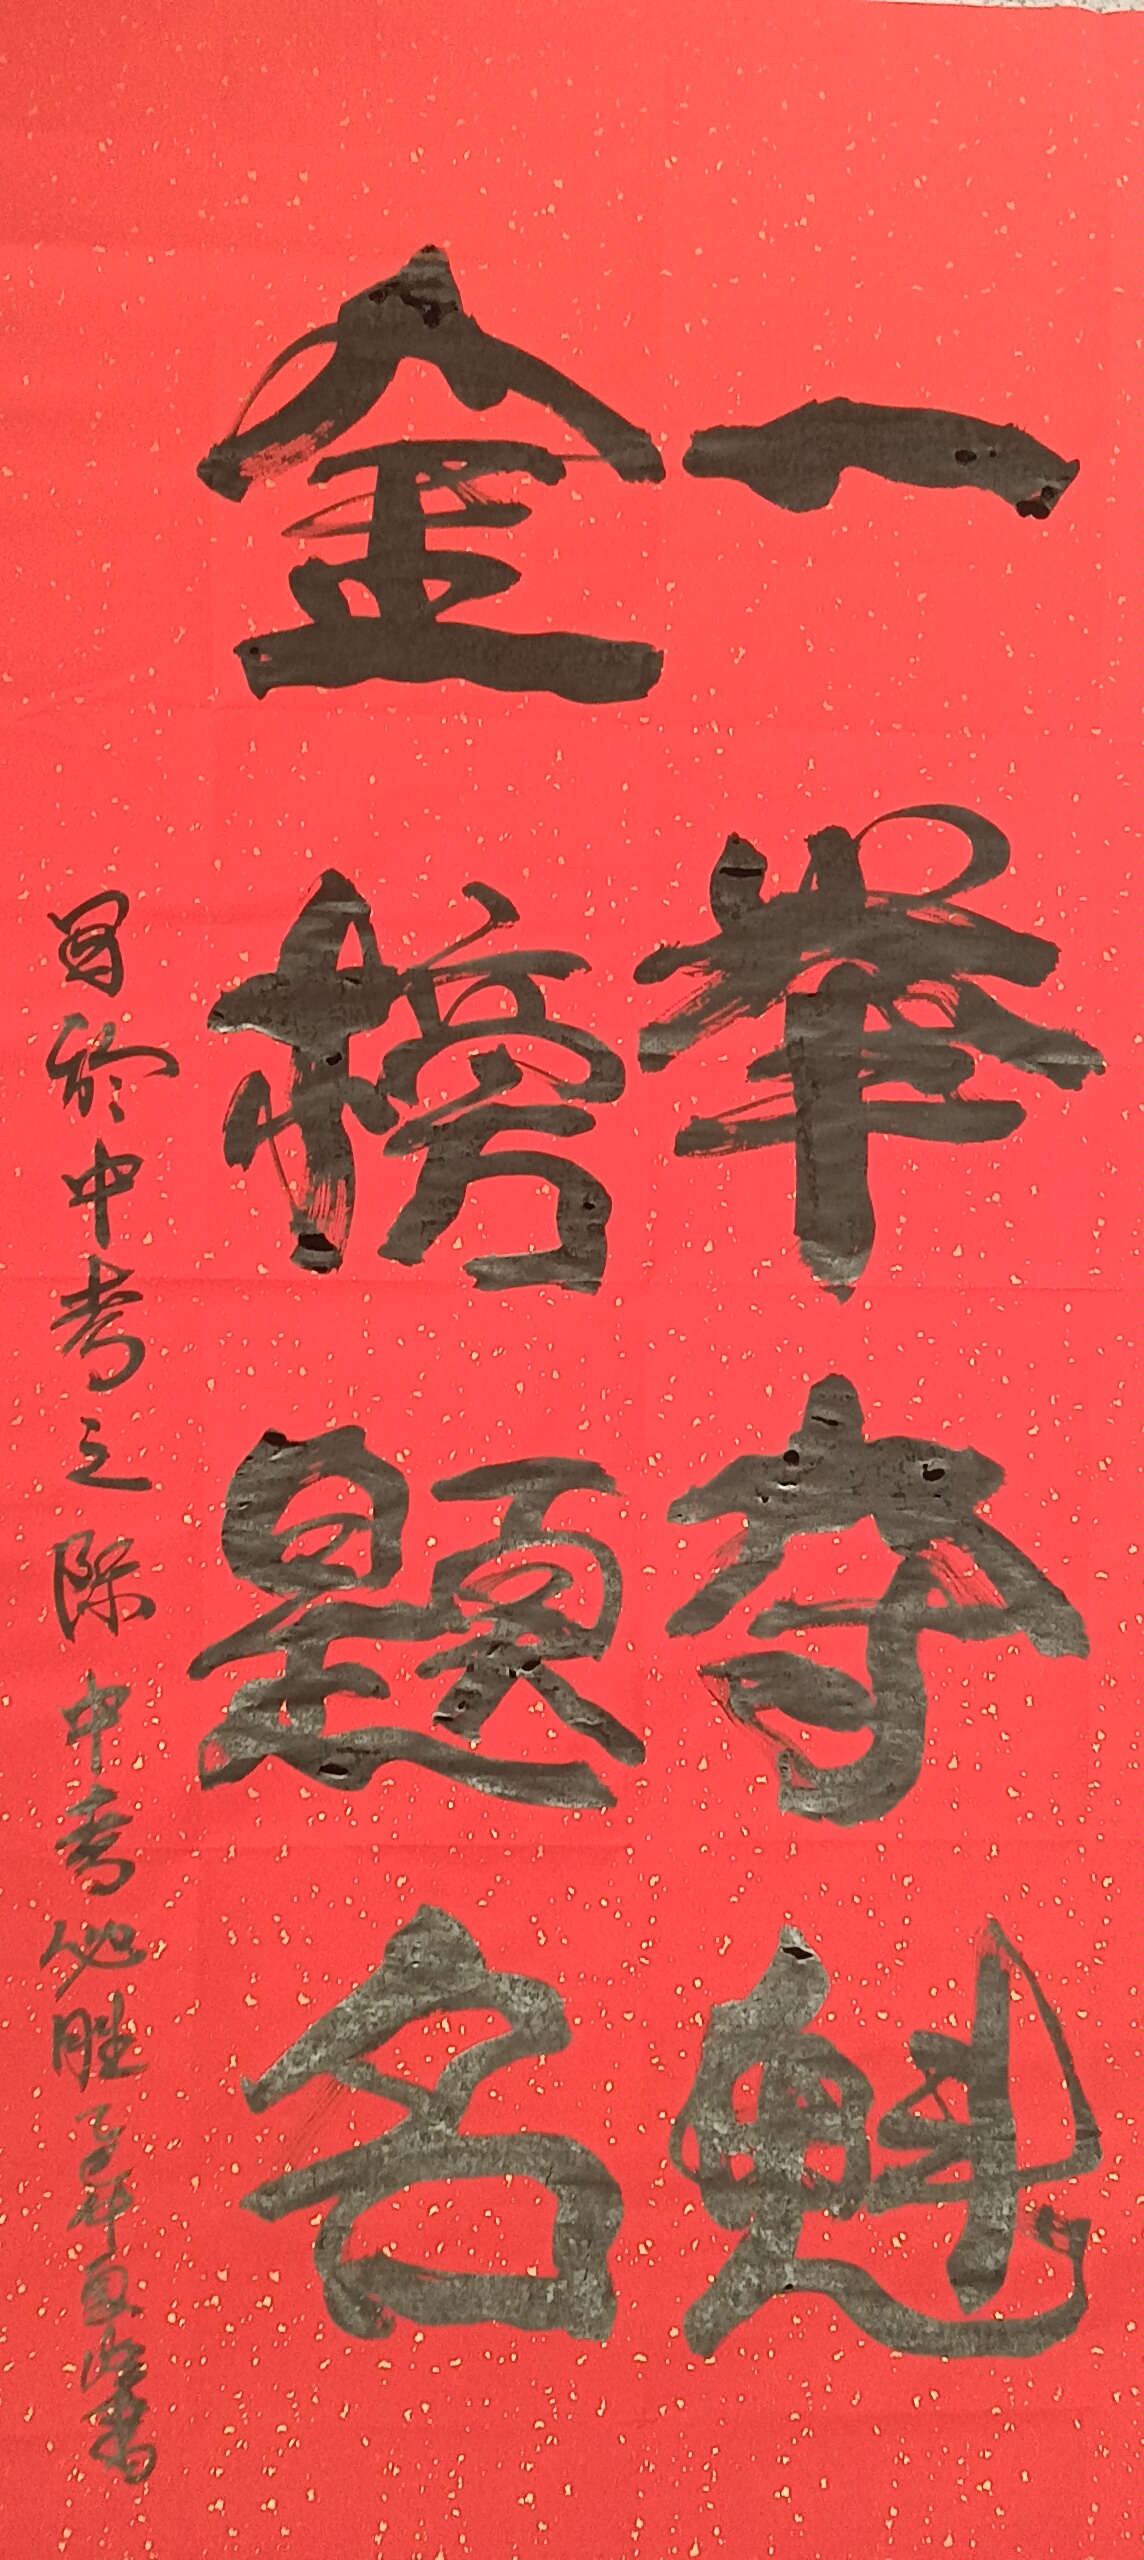 一举夺魁
金榜题名
写于中考之际中考必胜乙巳年夏书